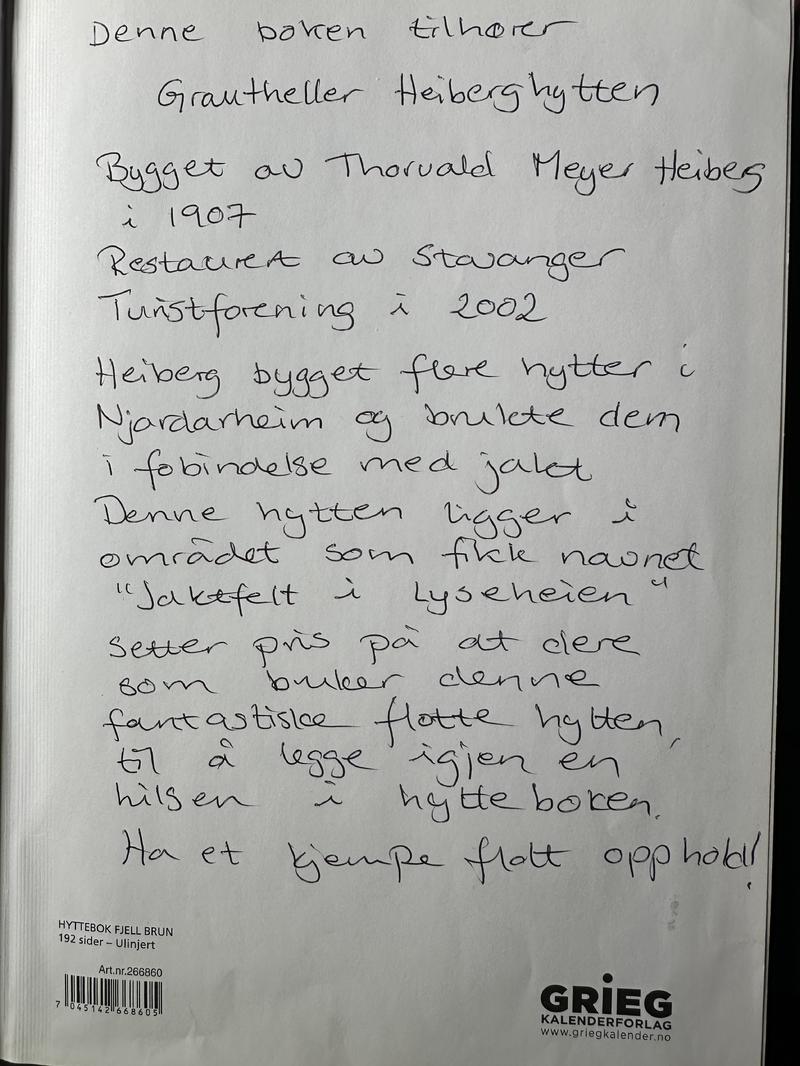 Denne boken tilhører
Grautheller Heiberghytten
Bygget av Thorvald Meyer Heiberg
i 1907
Restaurert av Stavanger
Turistforening i 2002
Heiberg bygget flere hytter i
Njardarheim og brukte dem
i fobindelse med jakt
Denne hytten ligger i
området som fikk navnet
"Jaktfelt i Lyseheien"
Setter pris på at dere
som bruker denne
fantastiske flotte hytten,
til å legge igjen en
hilsen i hytteboken.
Ha et kjempe flott opphold!
HYTTEBOK FJELL BRUN
192 sider – Ulinjert
Art.nr.266860
7 045142 668605
GRIEG
KALENDERFORLAG
www.griegkalender.no